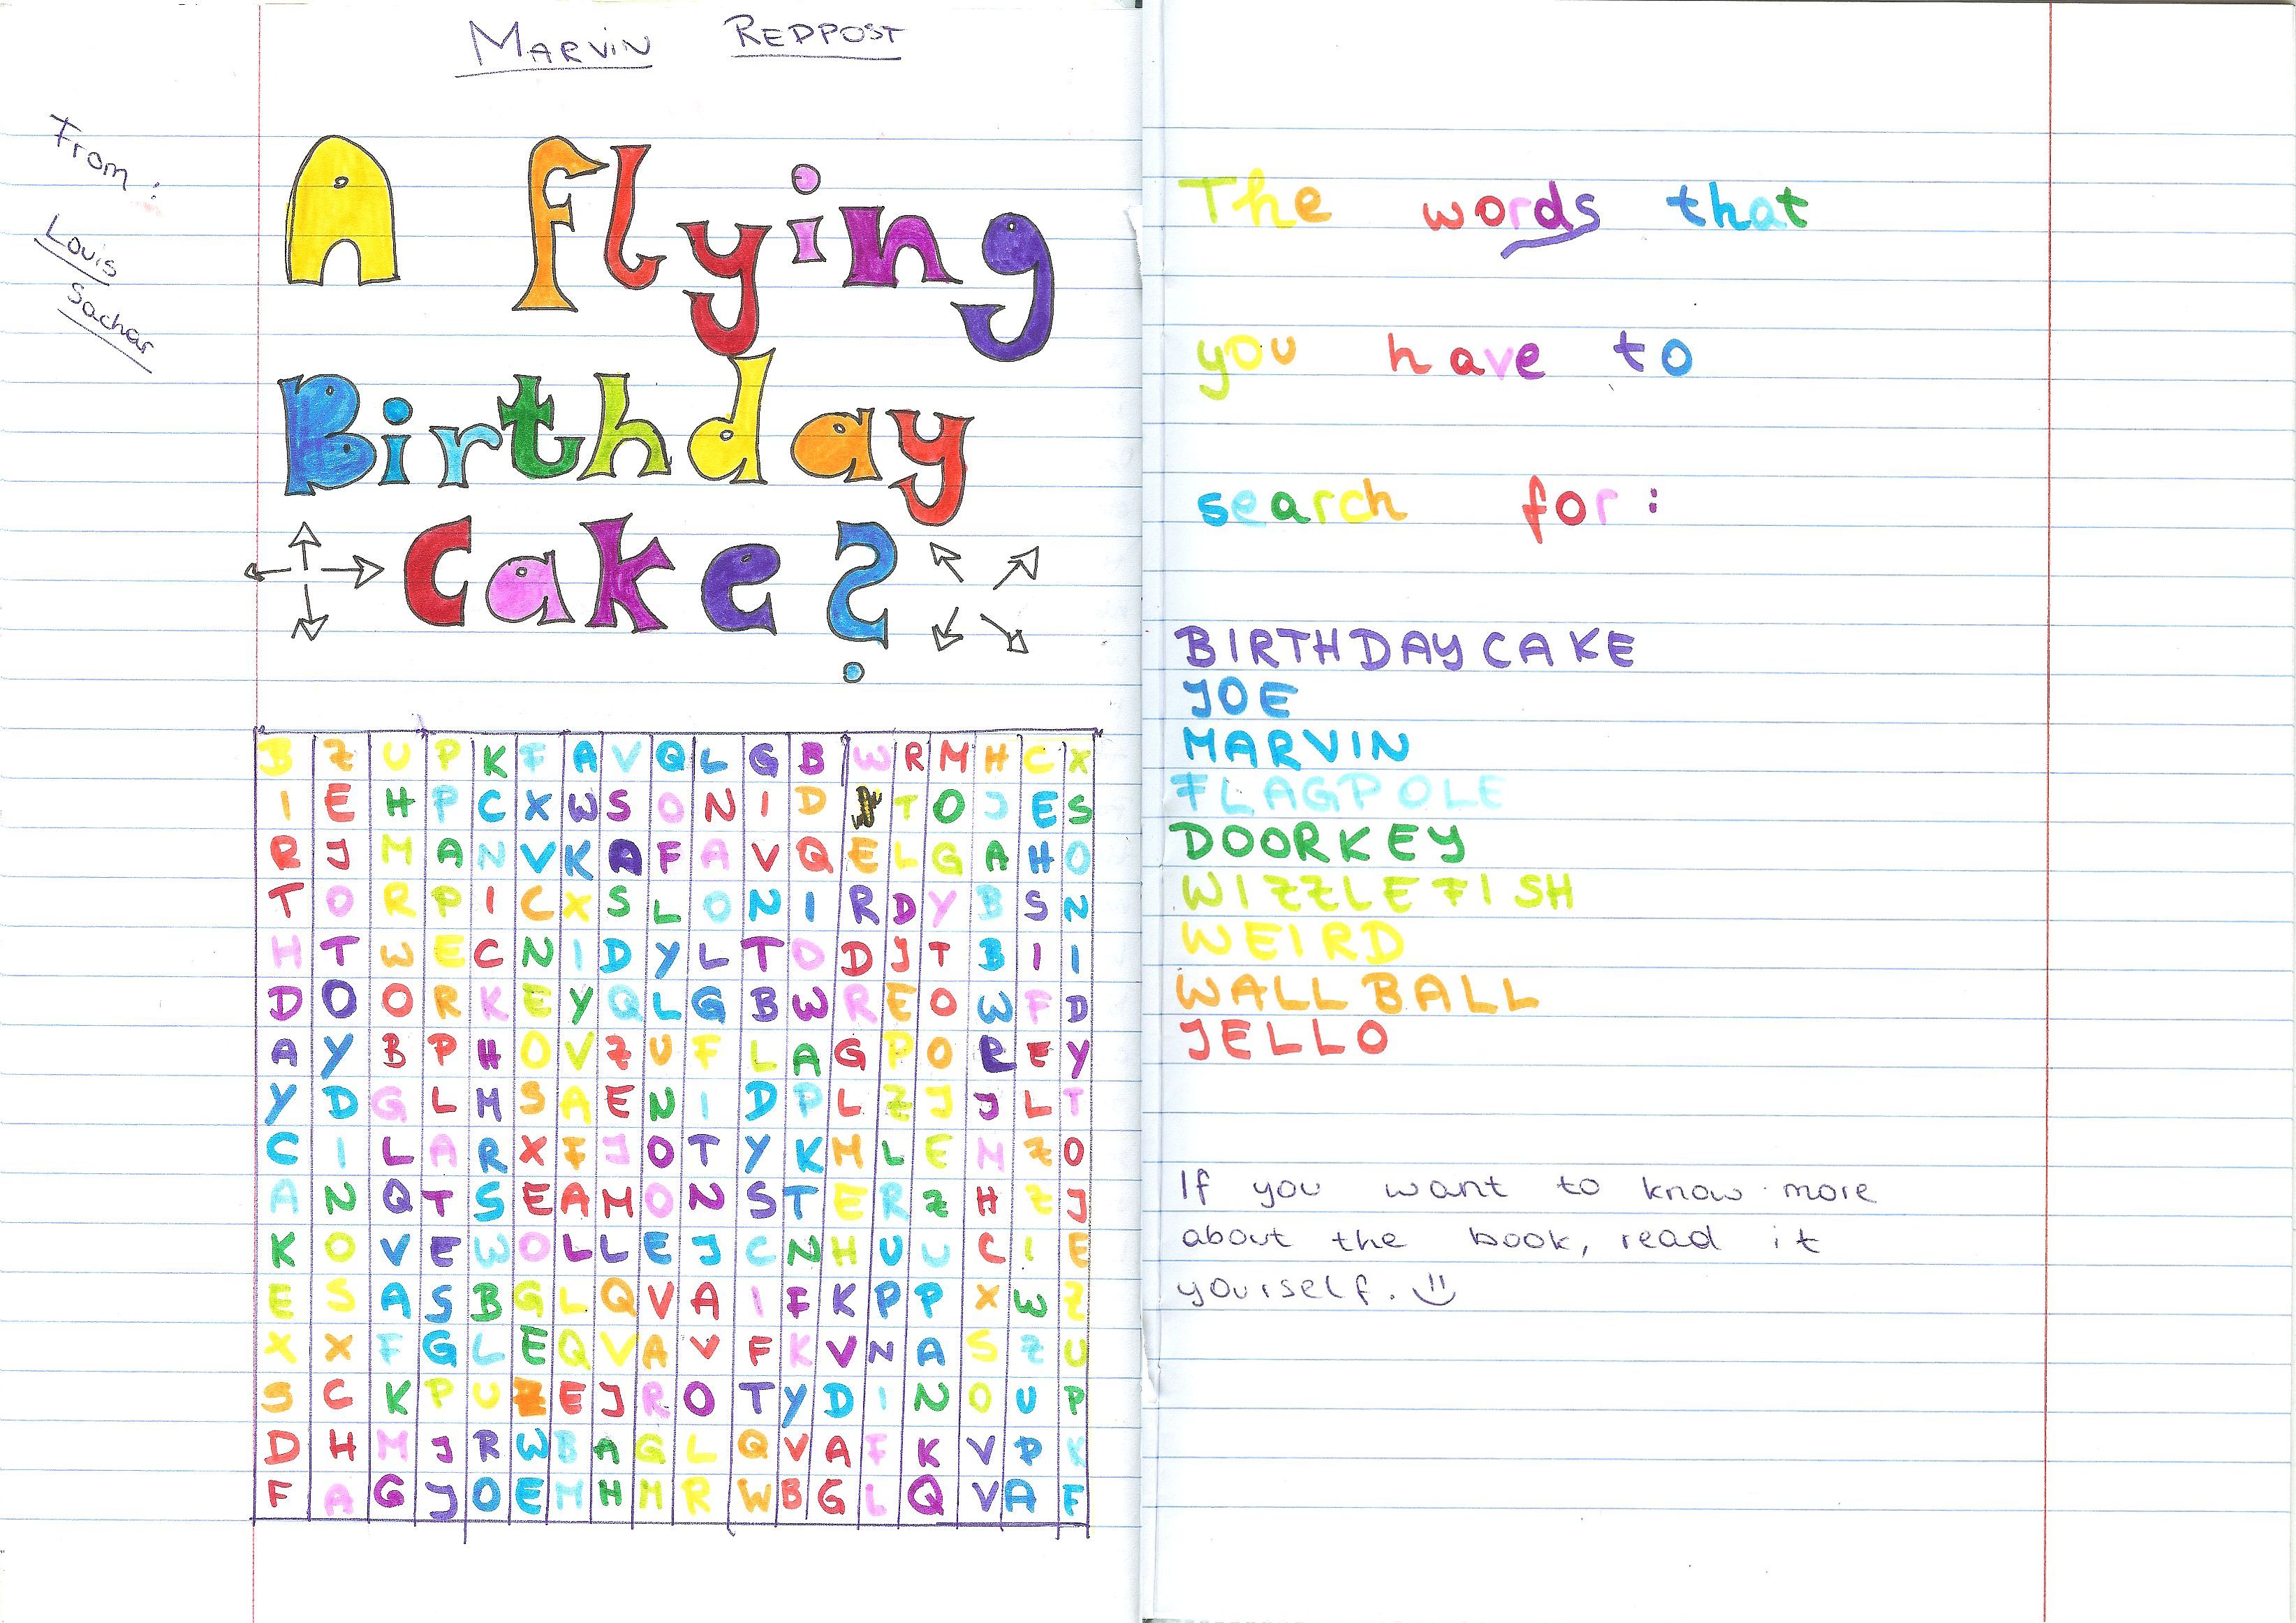 MARVIN REDPOST
From :
Louis
Sachar
A flying
Birthday
Cake?
B Z U P K F A V Q L G B W R M H C X
I E H P C X W S O N I D T O J E S
R J M A N V K A F A V Q E L G A H O
T O R P I C X S L O N I R D Y B S N
H T W E C N I D Y L T O D J T B I I
D O O R K E Y Q L G B W R E O W F D
A Y B P H O V Z U F L A G P O L E Y
Y D G L M S A E N I D P L Z J J L T
C I L A R X F J O T Y K M L E N Z O
A N Q T S E A M O N S T E R Z H Z J
K O V E W O L L E J C N H U U C I E
E S A S B G L Q V A I F K P P X W Z
X X F G L E Q V A V F K V N A S Z U
S C K P U Z E J R O T Y D I N O U P
D H M J R W B A G L Q V A F K V P K
F A G J O E M H M R W B G L Q V A F
The words that
you have to
search for :
BIRTHDAY CAKE
JOE
MARVIN
FLAGPOLE
DOORKEY
WIZZLEFISH
WEIRD
WALL BALL
JELLO
If you want to know more
about the book, read it
yourself. :)